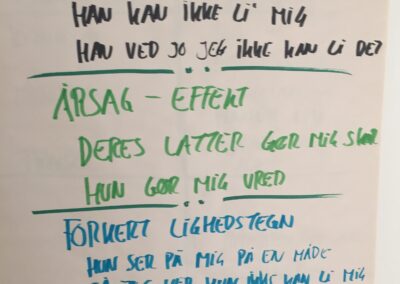 HAN KAN IKKE LI' MIG
HAN VED JO JEG IKKE KAN LI DET
ÅRSAG - EFFEKT
DERES LATTER GØR MIG SKØR
HUN GØR MIG VRED
FORKERT LIGHEDSTEGN
HUN SER PÅ MIG PÅ EN MÅDE
KAN LI MIG